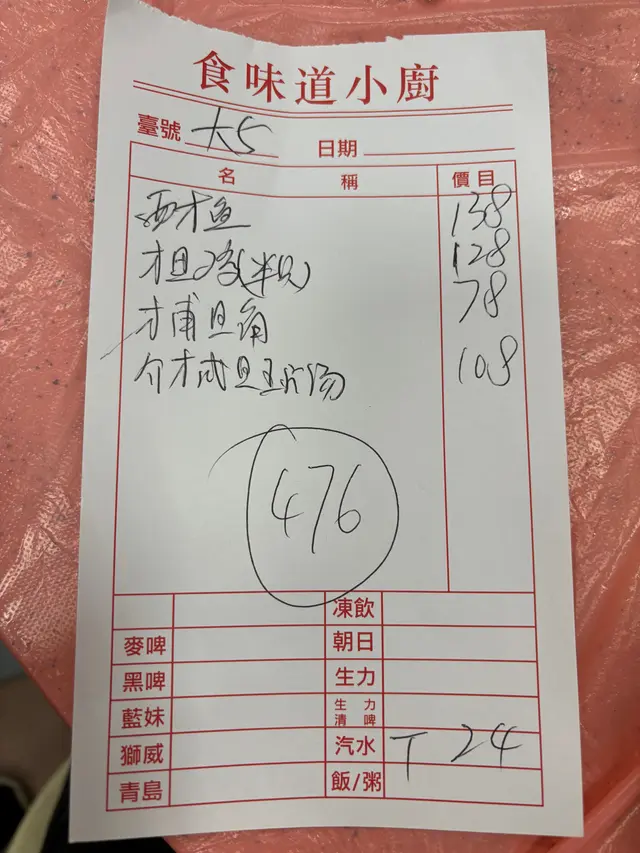 食味道小廚
臺號 大5 日期
名稱 價目
西才魚 138
(半只) 128
才甫旦角 78
介才咸旦 汤 108
476
凍飲
麥啤 朝日
黑啤 生力
藍妹 生力清啤
獅威 汽水 T 24
青島 飯/粥